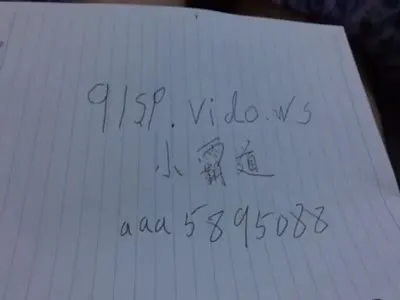 91sp.vido.ws
小霸道
aaa5895088